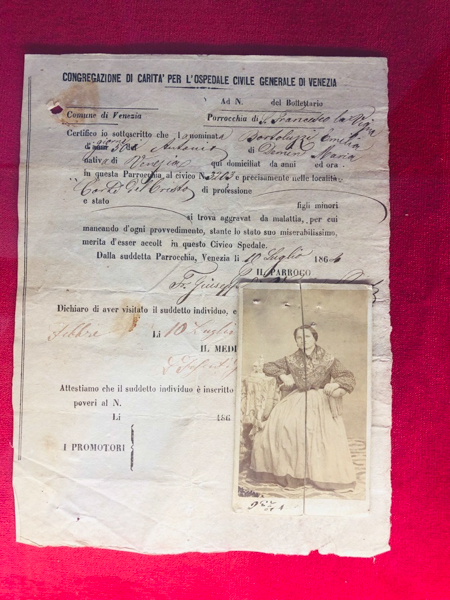 CONGREGAZIONE DI CARITA' PER L'OSPEDALE CIVILE GENERALE DI VENEZIA
Ad N. del Bollettario
Comune di Venezia Parrocchia di S. Francesco la Vigna
Certifico io sottoscritto che l nominata Bortoluzzi Emilia
d'anni di Antonio di Maria
nativa di Venezia qui domiciliat da anni ed ora
in questa Parrocchia, al civico N. 3213 e precisamente nelle località
Corte del Cristo di professione
e stato figli minori
si trova aggravat da malattia, per cui
mancando d'ogni provvedimento, stante lo stato suo miserabilissimo,
merita d'esser accolt in questo Civico Spedale.
Dalla suddetta Parrocchia, Venezia li 10 Luglio 186
IL PARROCO
Fr. Giuseppe
Dichiaro di aver visitato il suddetto individuo, e
febbre Li 10 Luglio
IL MEDI
Attestiamo che il suddetto individuo è inscritto
poveri al N.
Li 186
I PROMOTORI